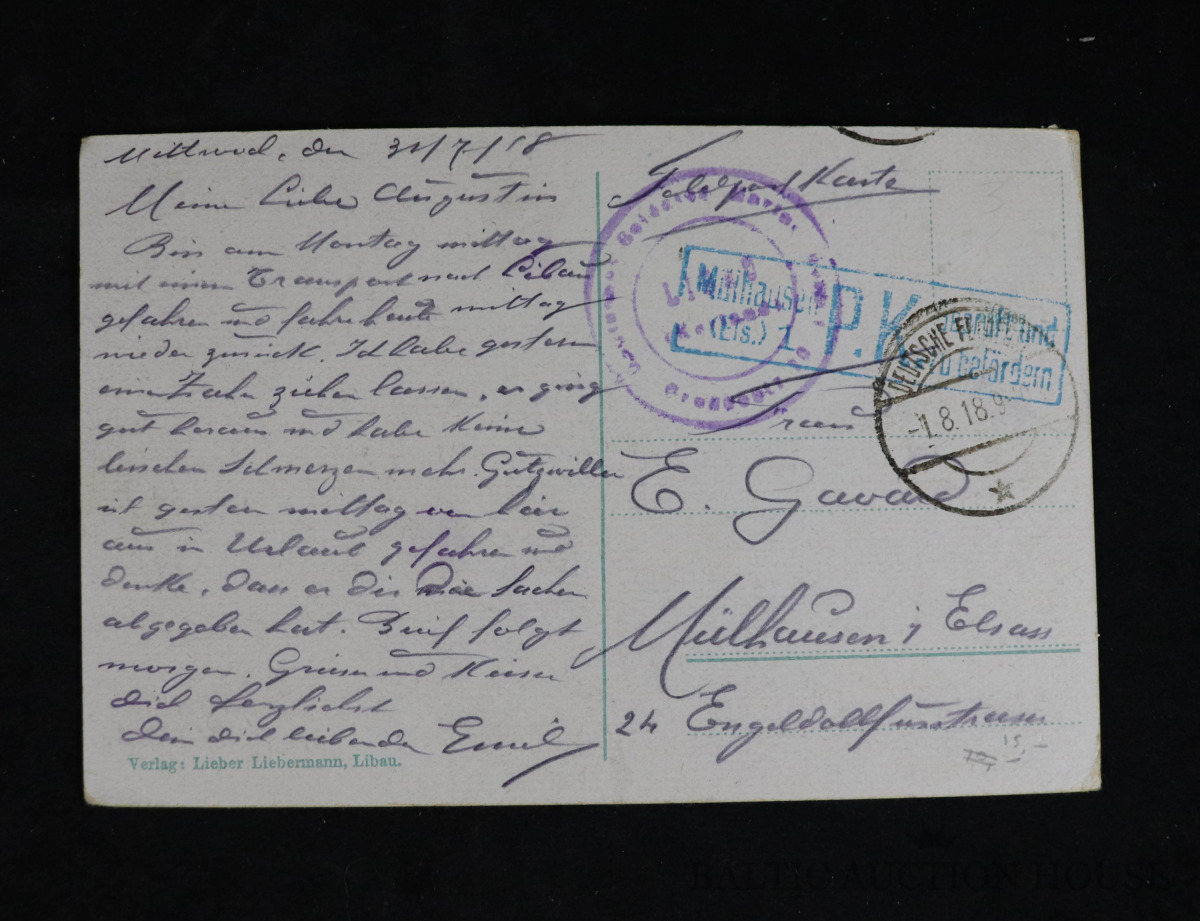 Mittwoch, den 31/7/18
Meine Liebe Augustin
Bin am Montag mittag
mit einem Transport nach Libau
gefahren und fahre heute mittag
wieder zurück. Ich habe gestern
einen Zahn ziehen lassen, er ging
gut heraus und habe keine
bischen Schmerzen mehr. Gutzwiller
ist gestern mittag von hier
aus in Urlaub gefahren und
denke, dass er dir die Sachen
abgegeben hat. Brief folgt
morgen. Grüsse und Küsse
dich herzlichst
dein dich liebender Emil
Verlag: Lieber Liebermann, Libau.
Feldpost Karte
Mülhausen
(Els.) 1
P.K.
und
zu befördern
DEUTSCHE FELDPOST
-1.8.18.9
Frau
E. Gavard
Mülhausen i Elsass
24 Engeldollfusstrasse
15,-
BALTIC AUCTION HOUSE